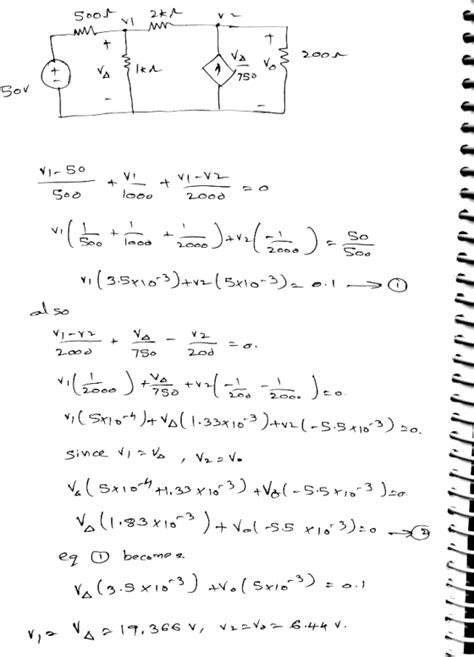 500Ω v1 2kΩ v2
50V + − + VΔ − 1kΩ VΔ/750 + Vo − 200Ω
(v1-50)/500 + v1/1000 + (v1-v2)/2000 = 0
v1(1/500 + 1/1000 + 1/2000) + v2(-1/2000) = 50/500
v1(3.5×10^-3) + v2(5×10^-3) = 0.1 → ①
also
(v1-v2)/2000 + VΔ/750 - v2/200 = 0.
v1(1/2000) + VΔ/750 + v2(-1/200 - 1/2000) = 0.
v1(5×10^-4) + VΔ(1.33×10^-3) + v2(-5.5×10^-3) = 0.
since v1 = VΔ, v2 = Vo
VΔ(5×10^-4 + 1.33×10^-3) + Vo(-5.5×10^-3) = 0
VΔ(1.83×10^-3) + Vo(-5.5×10^-3) = 0 → ②
eq ① becomes
VΔ(3.5×10^-3) + Vo(5×10^-3) = 0.1
v1 = VΔ = 19.366 V, v2 = Vo = 6.44 V.